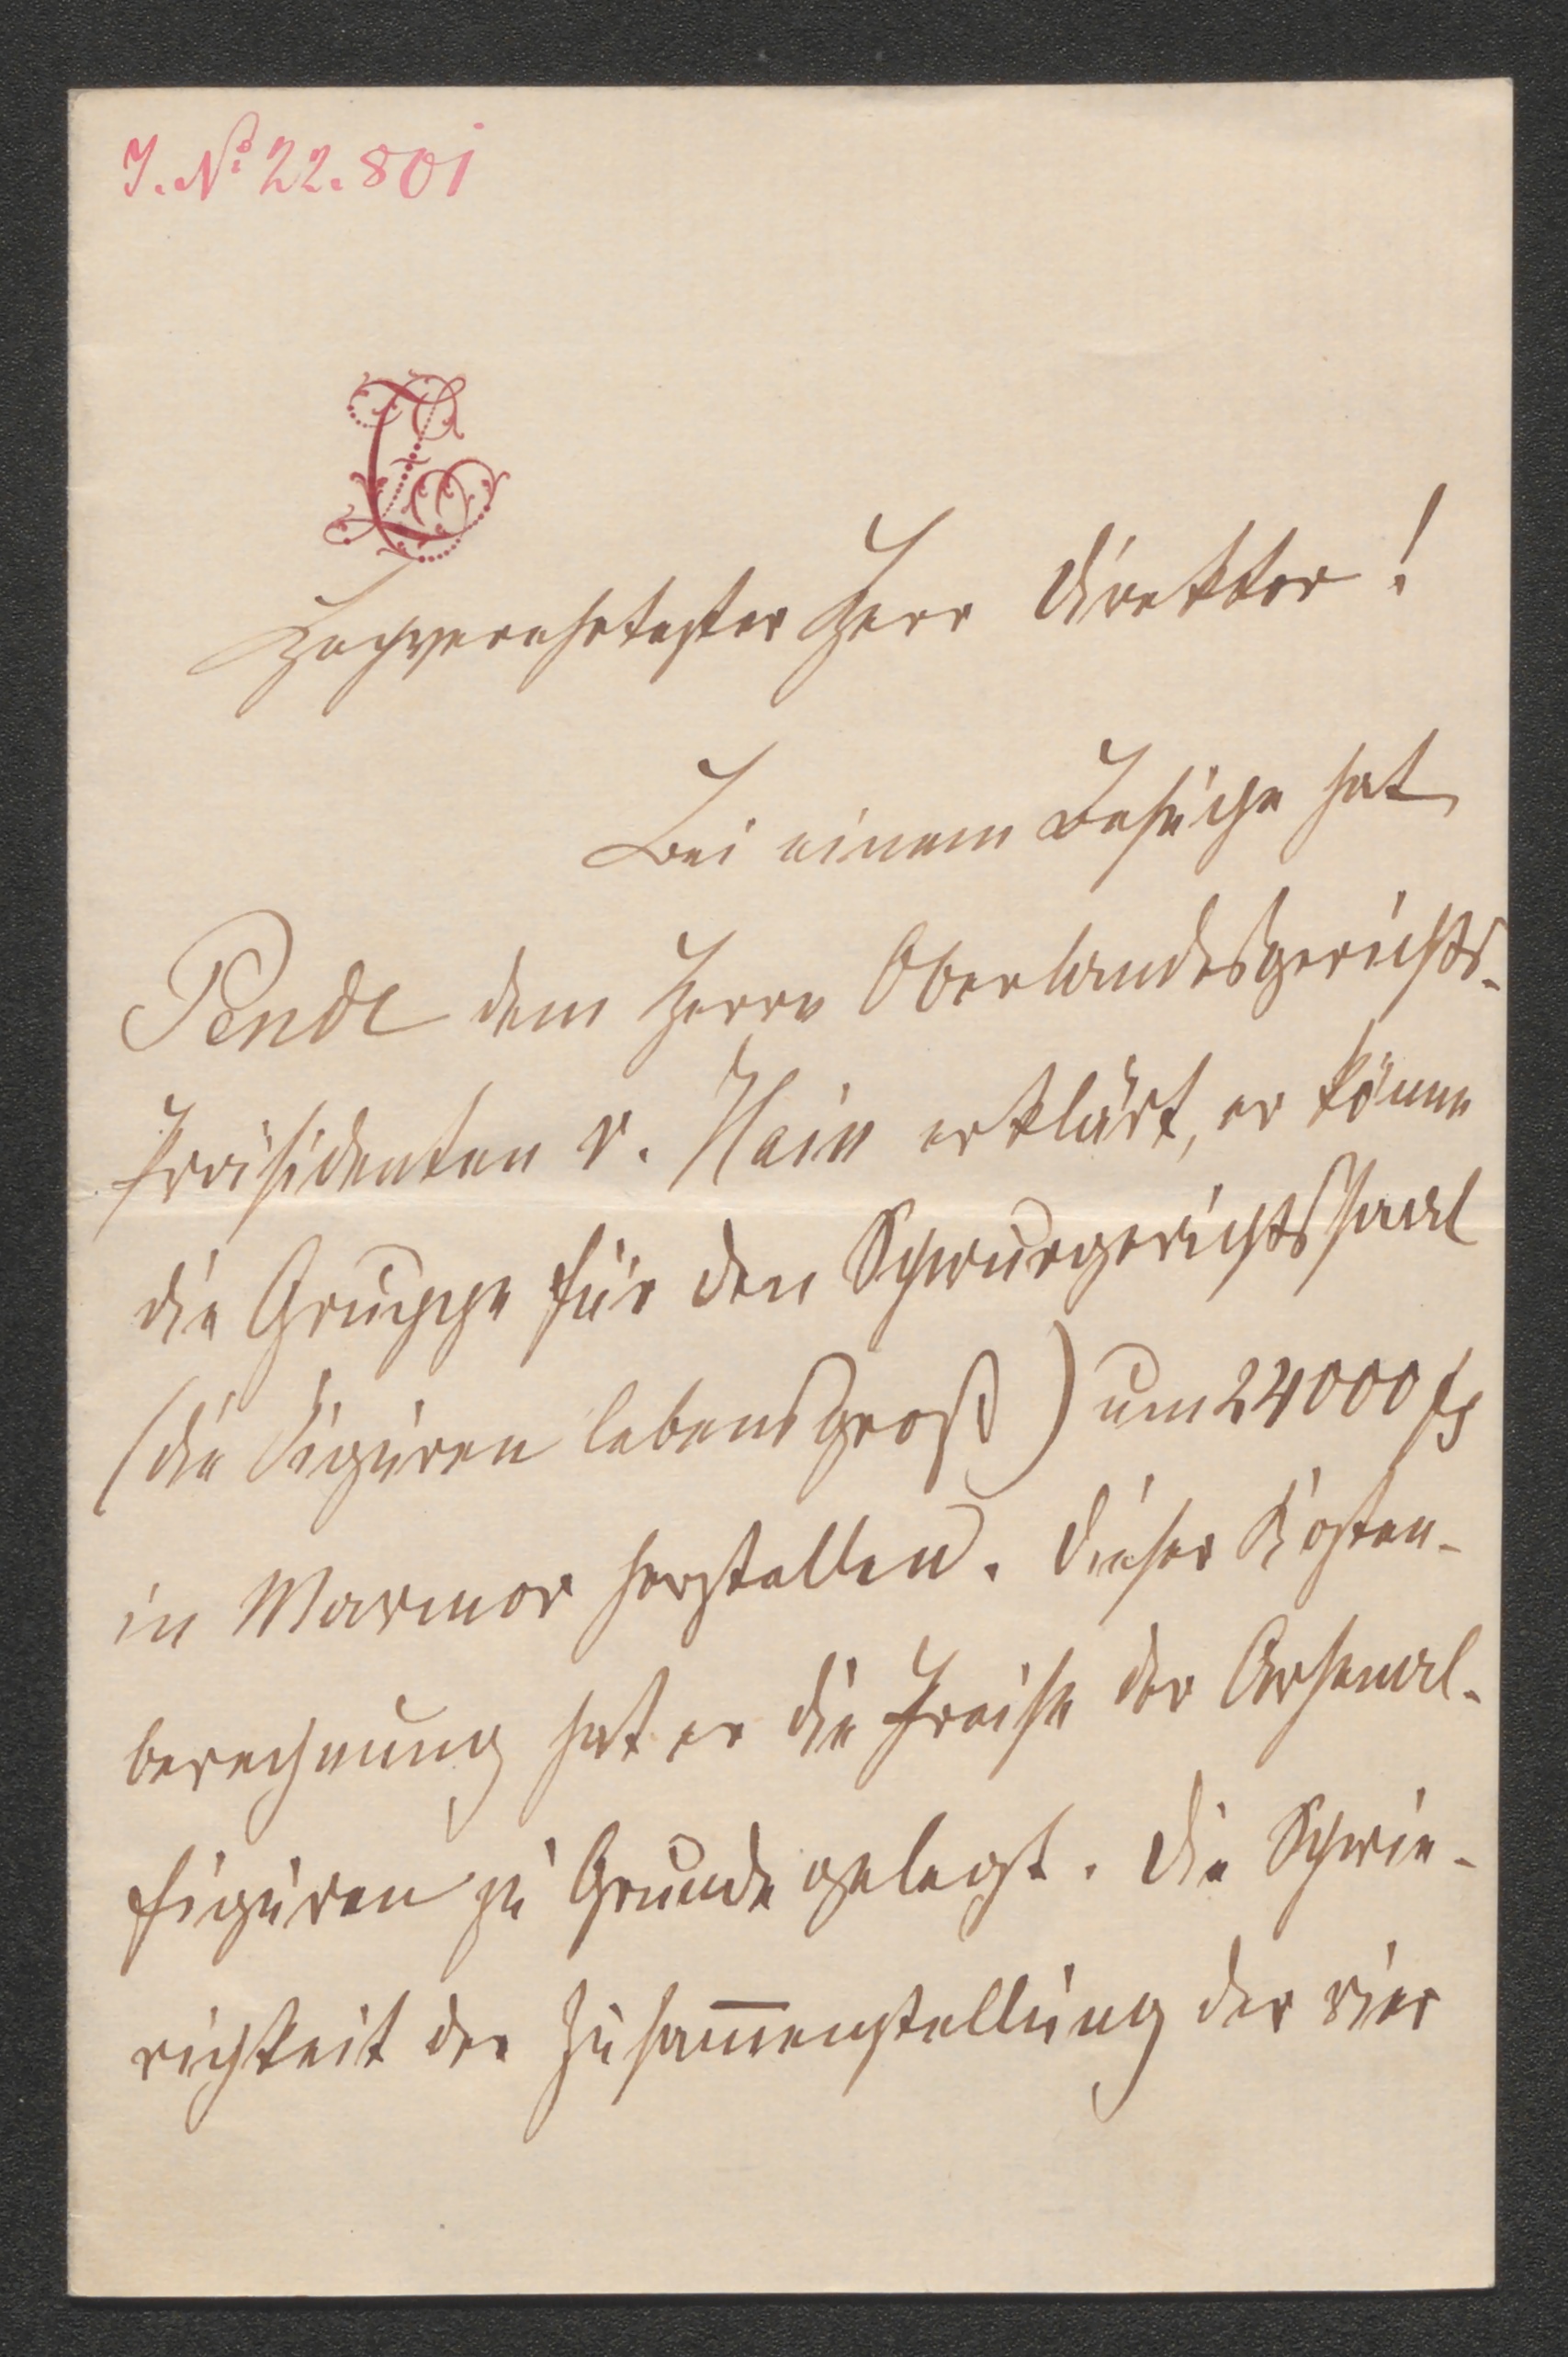 J. № 22.801
Hochverehrtester Herr Direktor!
Bei einem Besuche hat
Pendl dem Herrn Oberlandesgerichts-
Präsidenten v. Hein erklärt, er könne
die Gruppe für den Schwurgerichtssaal
(die Figuren lebensgroß) um 24000 fl
in Marmor herstellen. Dieser Kosten-
berechnung hat er die Preise der Arsenal-
figuren zu Grunde gelegt. Die Schwie-
rigkeit der Zusam̅enstellung der vier